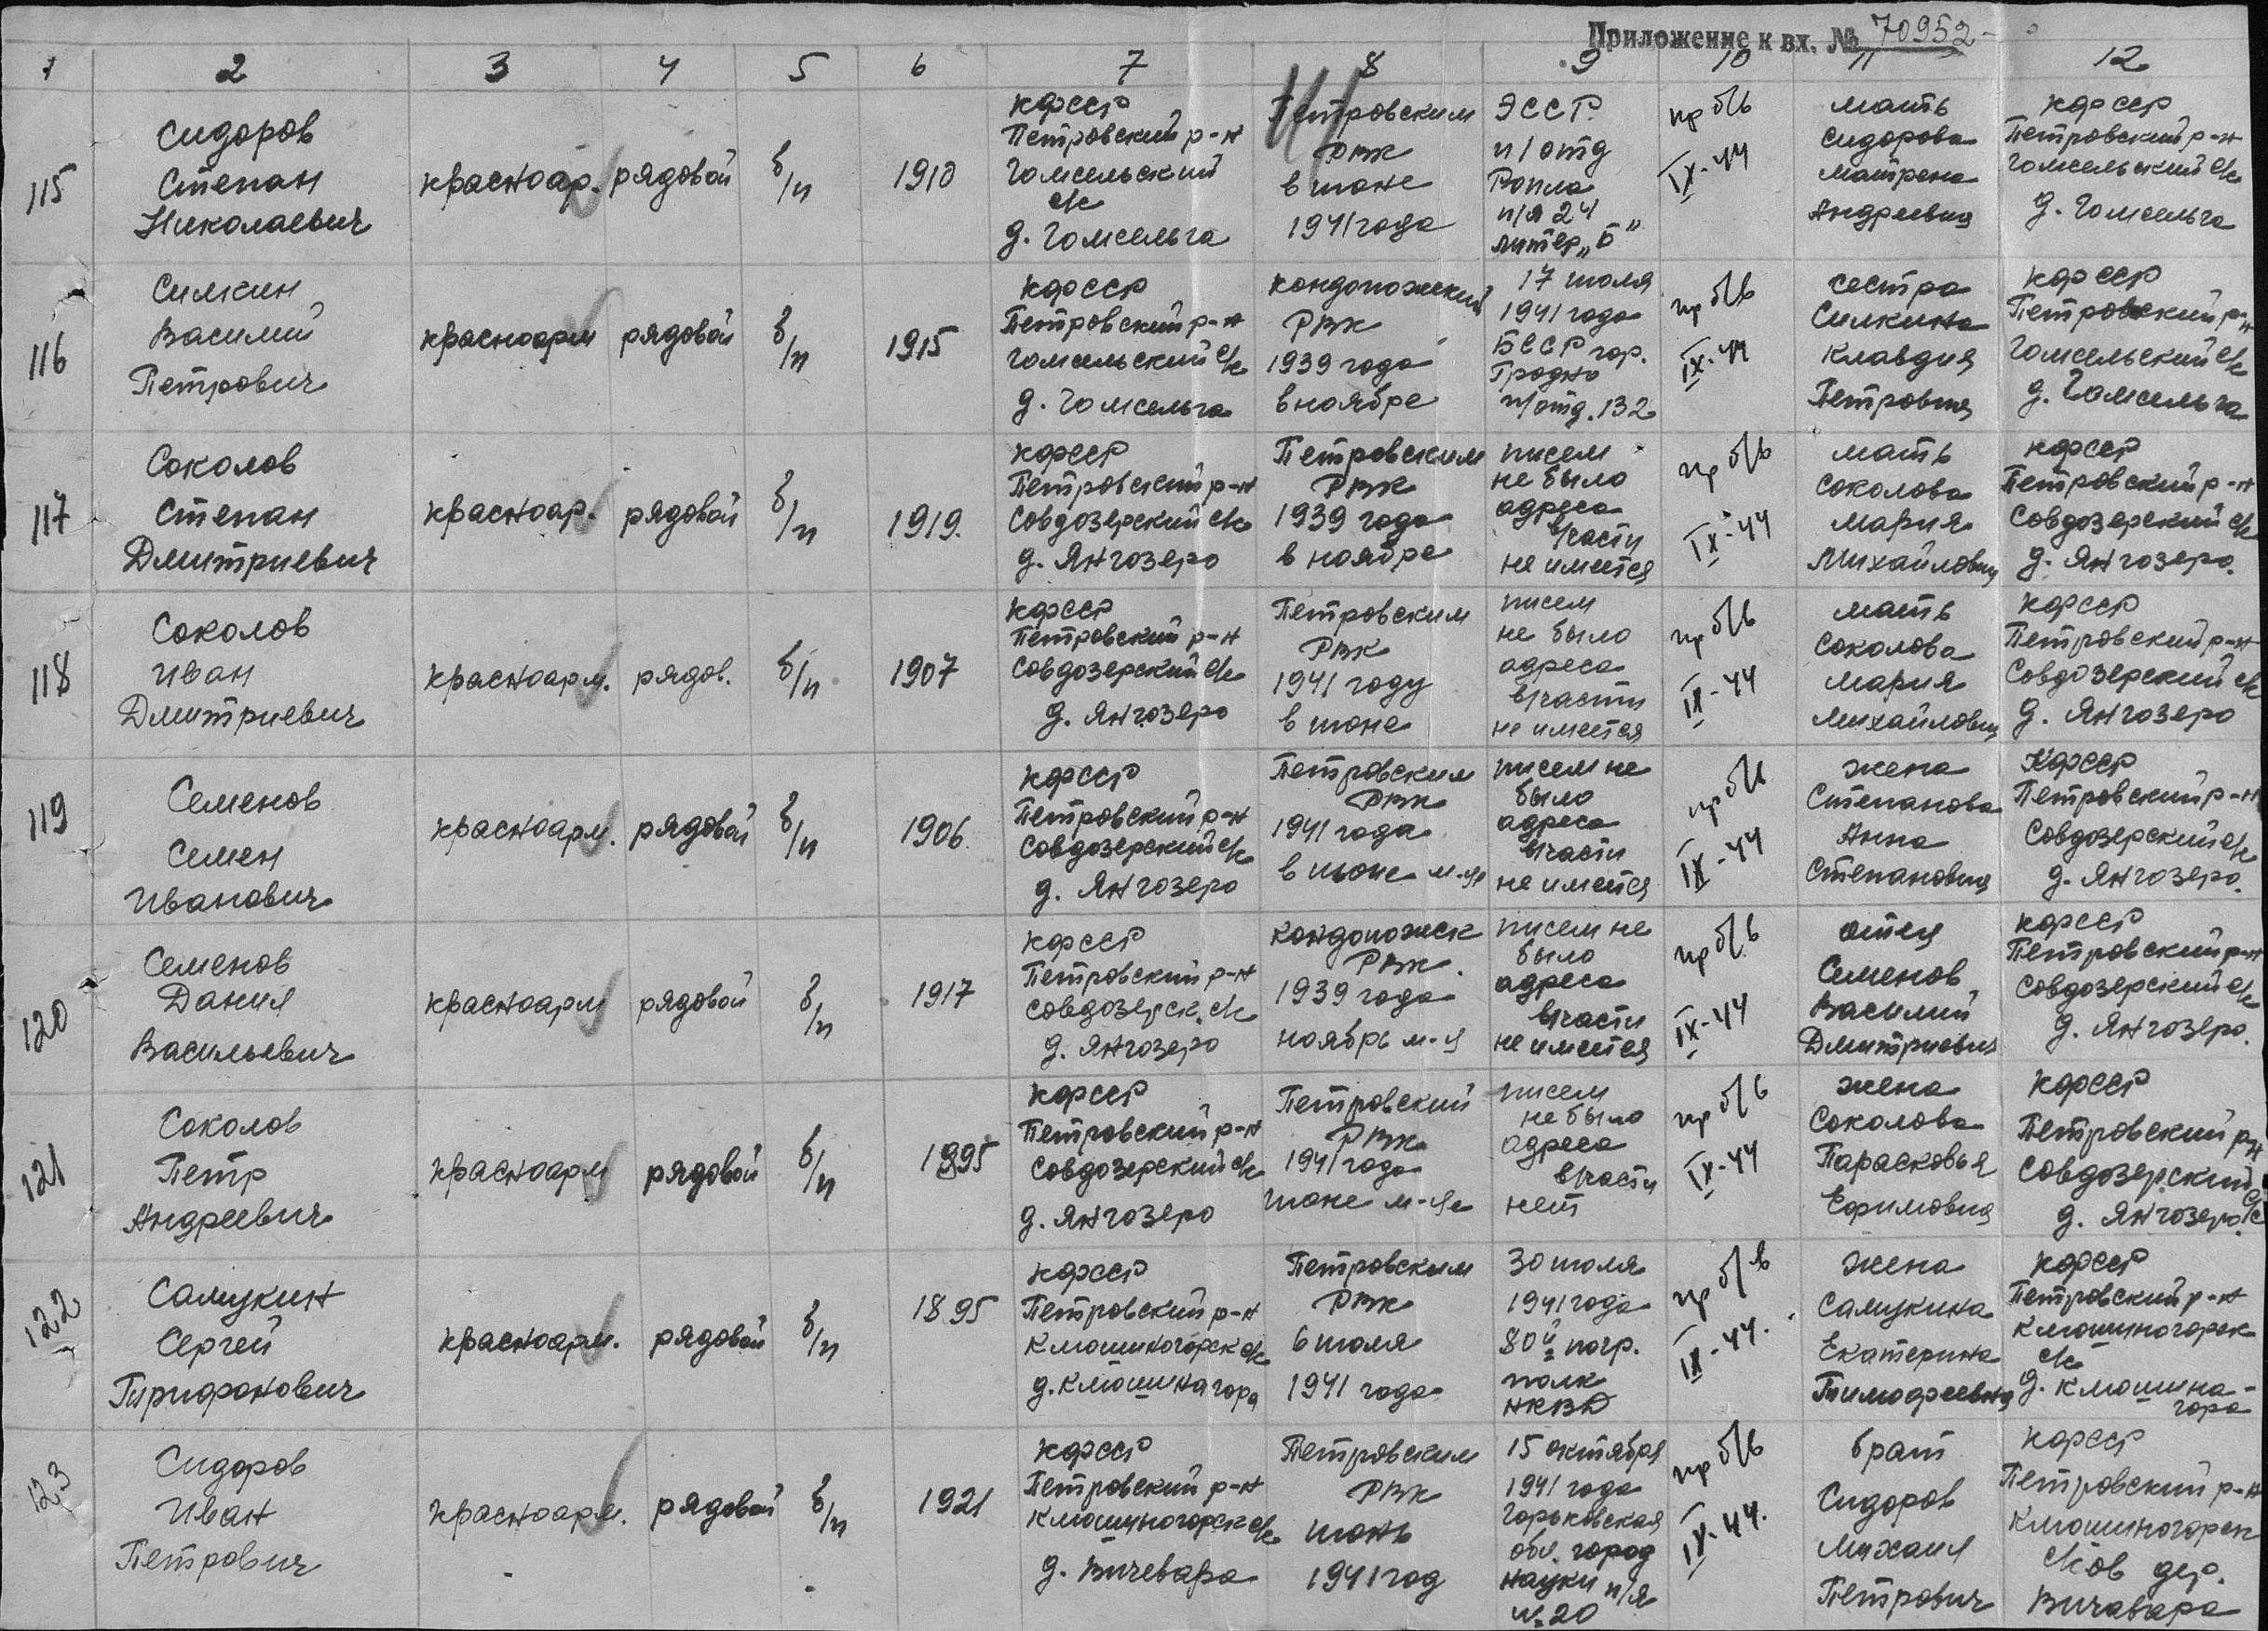 Приложение к вх. № 70952
1 2 3 4 5 6 7 8 9 10 11 12
115
Сидоров
Степан
Николаевич
красноар.
рядовой
б/п
1910
КФССР
Петровский р-н
Гомсельский
с/с
д. Гомсельга
Петровским
РВК
в июне
1941 года
ЭССР.
п/отд
Рапла
п/я 24
литер „Б"
пр б/в
IX-44
мать
Сидорова
Матрена
Андреевна
КФССР
Петровский р-н
Гомсельский с/с
д. Гомсельга
116
Силкин
Василий
Петрович
красноарм
рядовой
б/п
1915
КФССР
Петровский р-н
Гомсельский с/с
д. Гомсельга
Кондопожский
РВК
1939 года
в ноябре
17 июля
1941 года
БССР гор.
Гродно
п/отд. 132
пр б/в
IX-44
сестра
Силкина
Клавдия
Петровна
КФССР
Петровский р-н
Гомсельский с/с
д. Гомсельга
117
Соколов
Степан
Дмитриевич
красноар.
рядовой
б/п
1919.
КФССР
Петровский р-н
Совдозерский с/с
д. Янгозеро
Петровским
РВК
1939 года
в ноябре
писем
не было
адреса
в/части
не имеется
пр б/в
IX-44
мать
Соколова
Мария
Михайловна
КФССР
Петровский р-н
Совдозерский с/с
д. Янгозеро.
118
Соколов
Иван
Дмитриевич
красноарм.
рядов.
б/п
1907
КФССР
Петровский р-н
Совдозерский с/с
д. Янгозеро
Петровским
РВК
1941 году
в июне
писем
не было
адреса
в/части
не имеется
пр б/в
IX-44
мать
Соколова
Мария
Михайловна
КФССР
Петровский р-н
Совдозерский с/с
д. Янгозеро
119
Семенов
Семен
Иванович
красноарм.
рядовой
б/п
1906.
КФССР
Петровский р-н
Совдозерский с/с
д. Янгозеро
Петровским
РВК
1941 года
в июне м-це
писем не
было
адреса
в/части
не имеется
пр б/в
IX-44
жена
Степанова
Анна
Степановна
КФССР
Петровский р-н
Совдозерский с/с
д. Янгозеро.
120
Семенов
Данил
Васильевич
красноарм
рядовой
б/п
1917
КФССР
Петровский р-н
Совдозерск. с/с
д. Янгозеро
Кондопожск
РВК.
1939 года
ноябрь м-ц
писем не
было
адреса
в/части
не имеется
пр б/в
IX-44
отец
Семенов
Василий
Дмитриевич
КФССР
Петровский р-н
Совдозерский с/с
д. Янгозеро.
121
Соколов
Петр
Андреевич
красноарм
рядовой
б/п
1895
КФССР
Петровский р-н
Совдозерский с/с
д. Янгозеро
Петровский
РВК
1941 года
июне м-це
писем
не было
адреса
в/части
нет
пр б/в
IX-44
жена
Соколова
Парасковья
Ефимовна
КФССР
Петровский р-н
Совдозерский с/с
д. Янгозеро.
122
Самукин
Сергей
Трифонович
красноарм.
рядовой
б/п
1895
КФССР
Петровский р-н
Клюшиногорск с/с
д. Клюшина гора
Петровским
РВК
6 июля
1941 года
30 июля
1941 года
80й погр.
полк
НКВД
пр б/в
IX-44.
жена
Самукина
Екатерина
Тимофеевна
КФССР
Петровский р-н
Клюшиногорск
с/с
д. Клюшина-
гора
123
Сидоров
Иван
Петрович
красноарм.
рядовой
б/п
1921
КФССР
Петровский р-н
Клюшиногорск с/с
д. Вичевара
Петровским
РВК
июнь
1941 год
15 октября
1941 года
Горьковская
обл. город
п/я
№ 20
пр б/в
IX-44.
брат
Сидоров
Михаил
Петрович
КФССР
Петровский р-н
Клюшиногорск
дер.
Вичавара